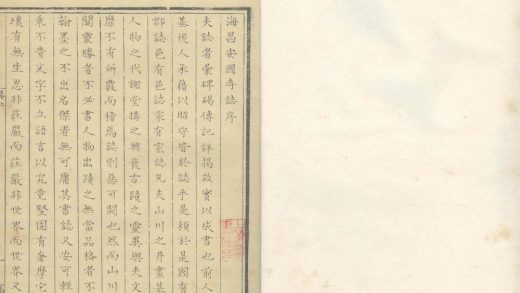 海昌安國寺誌序
夫誌者彙碑碣傳記詳揭故實以成書也前人
基後人承藉以昭守音於誌乎是賴於是國有
郡誌邑有邑誌家有家誌凡夫山川之井畫甚
人物之代謝堂構之興衰古蹟之靈異與夫文
靡不有所嚴而稽焉誌則曷可闕也然而山川
關靈勝者不必書人物出蹟之無當品格者不
翰墨之不出名傑者無可庸其書誌又安可輕
乘不貴文字不立語言以究竟堅固有奢摩它
壤有無生忍非莊嚴而莊嚴非世界而世界又